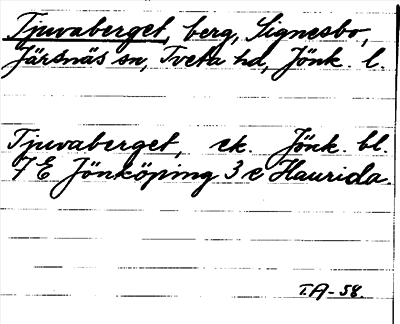 Tjuvaberget, berg, Signesbo,
Järsnäs sn, Tveta hd, Jönk. l.
Tjuvaberget, ek. Jönk. bl.
7 E Jönköping 3 e Haurida.
T.A-58.